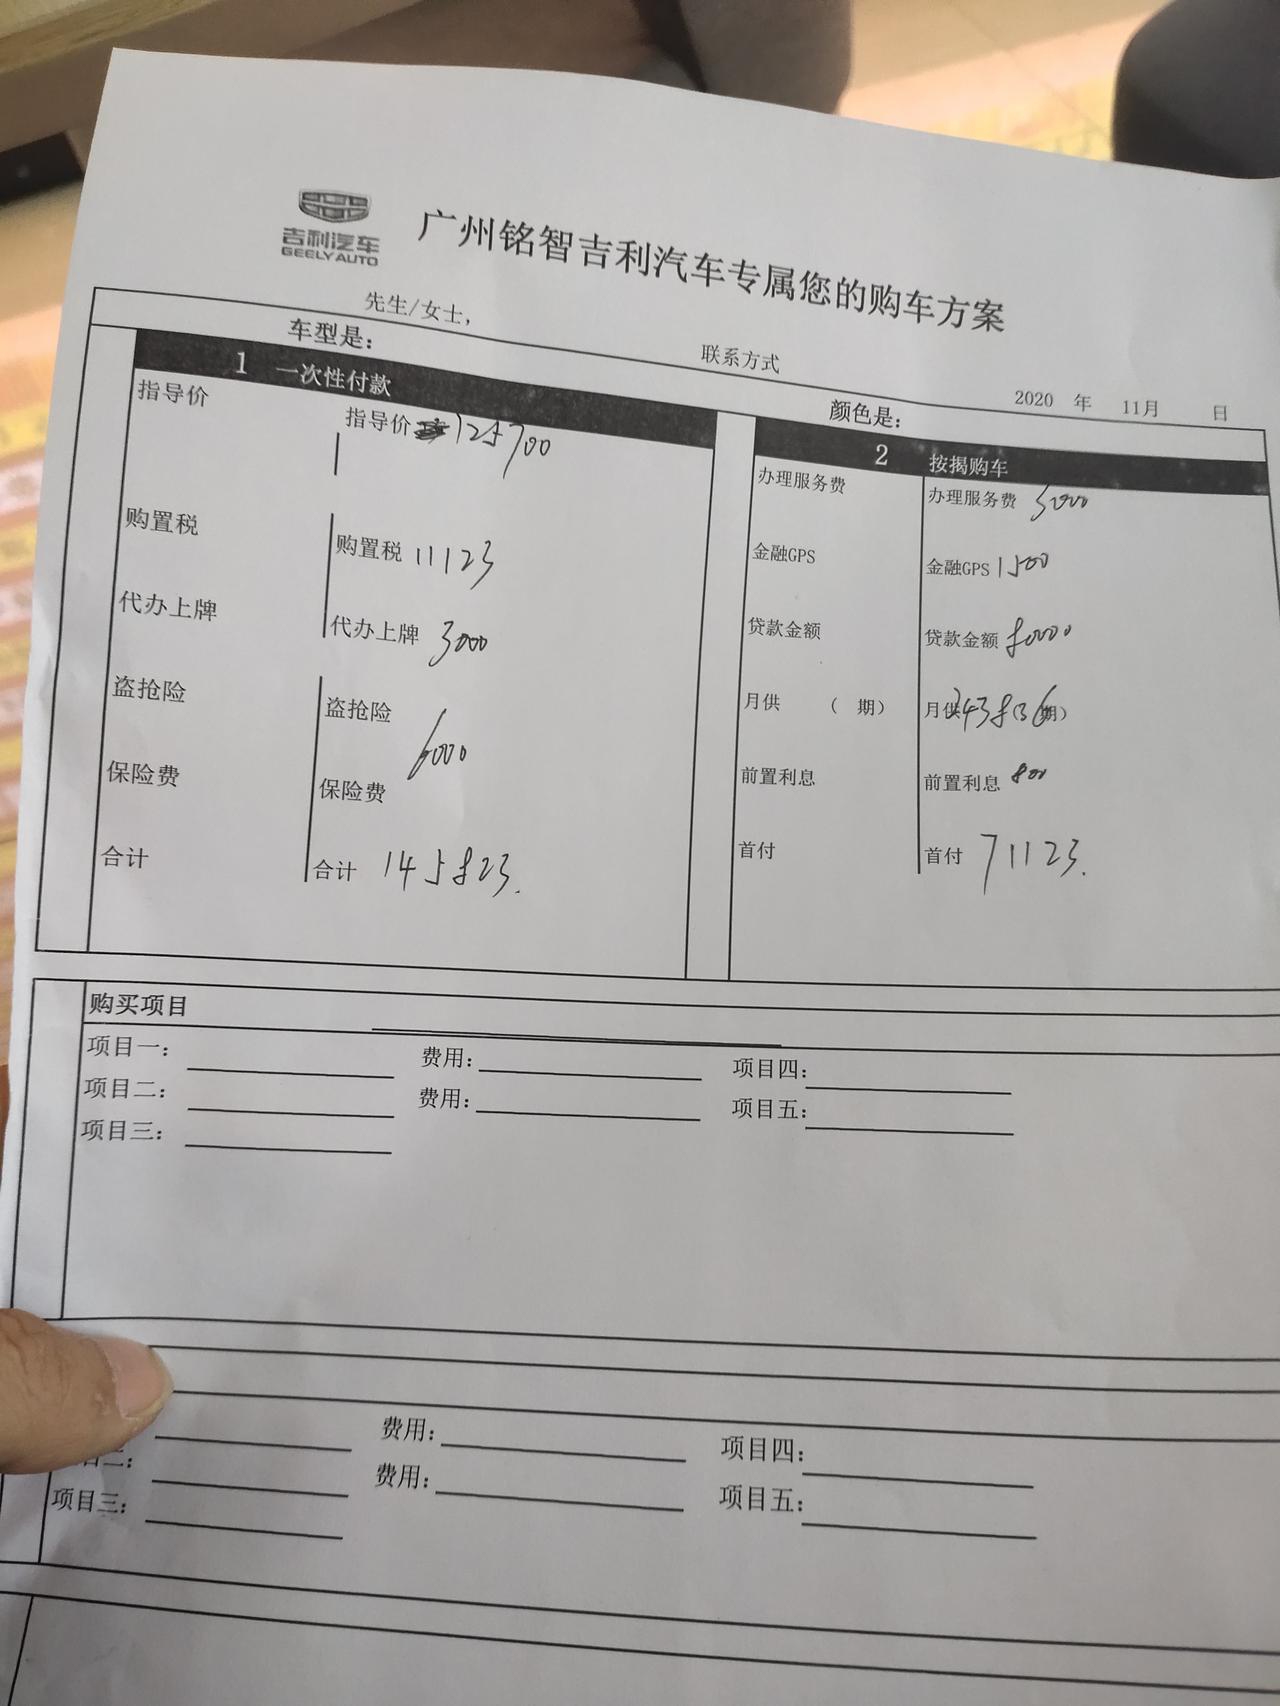 吉利汽车
GEELY AUTO
广州铭智吉利汽车专属您的购车方案
先生/女士,
联系方式
2020 年 11月 日
车型是:
颜色是:
1 一次性付款
指导价
指导价 125700
购置税
购置税 11123
代办上牌
代办上牌 3000
盗抢险
盗抢险
6000
保险费
保险费
合计
合计 145823.
2 按揭购车
办理服务费
办理服务费 3000
金融GPS
金融GPS 1500
贷款金额
贷款金额 80000
月供 ( 期)
月供2438(36期)
前置利息
前置利息 800
首付
首付 71123.
购买项目
项目一: 费用: 项目四:
项目二: 费用: 项目五:
项目三:
费用: 项目四:
二: 费用: 项目五:
项目三: